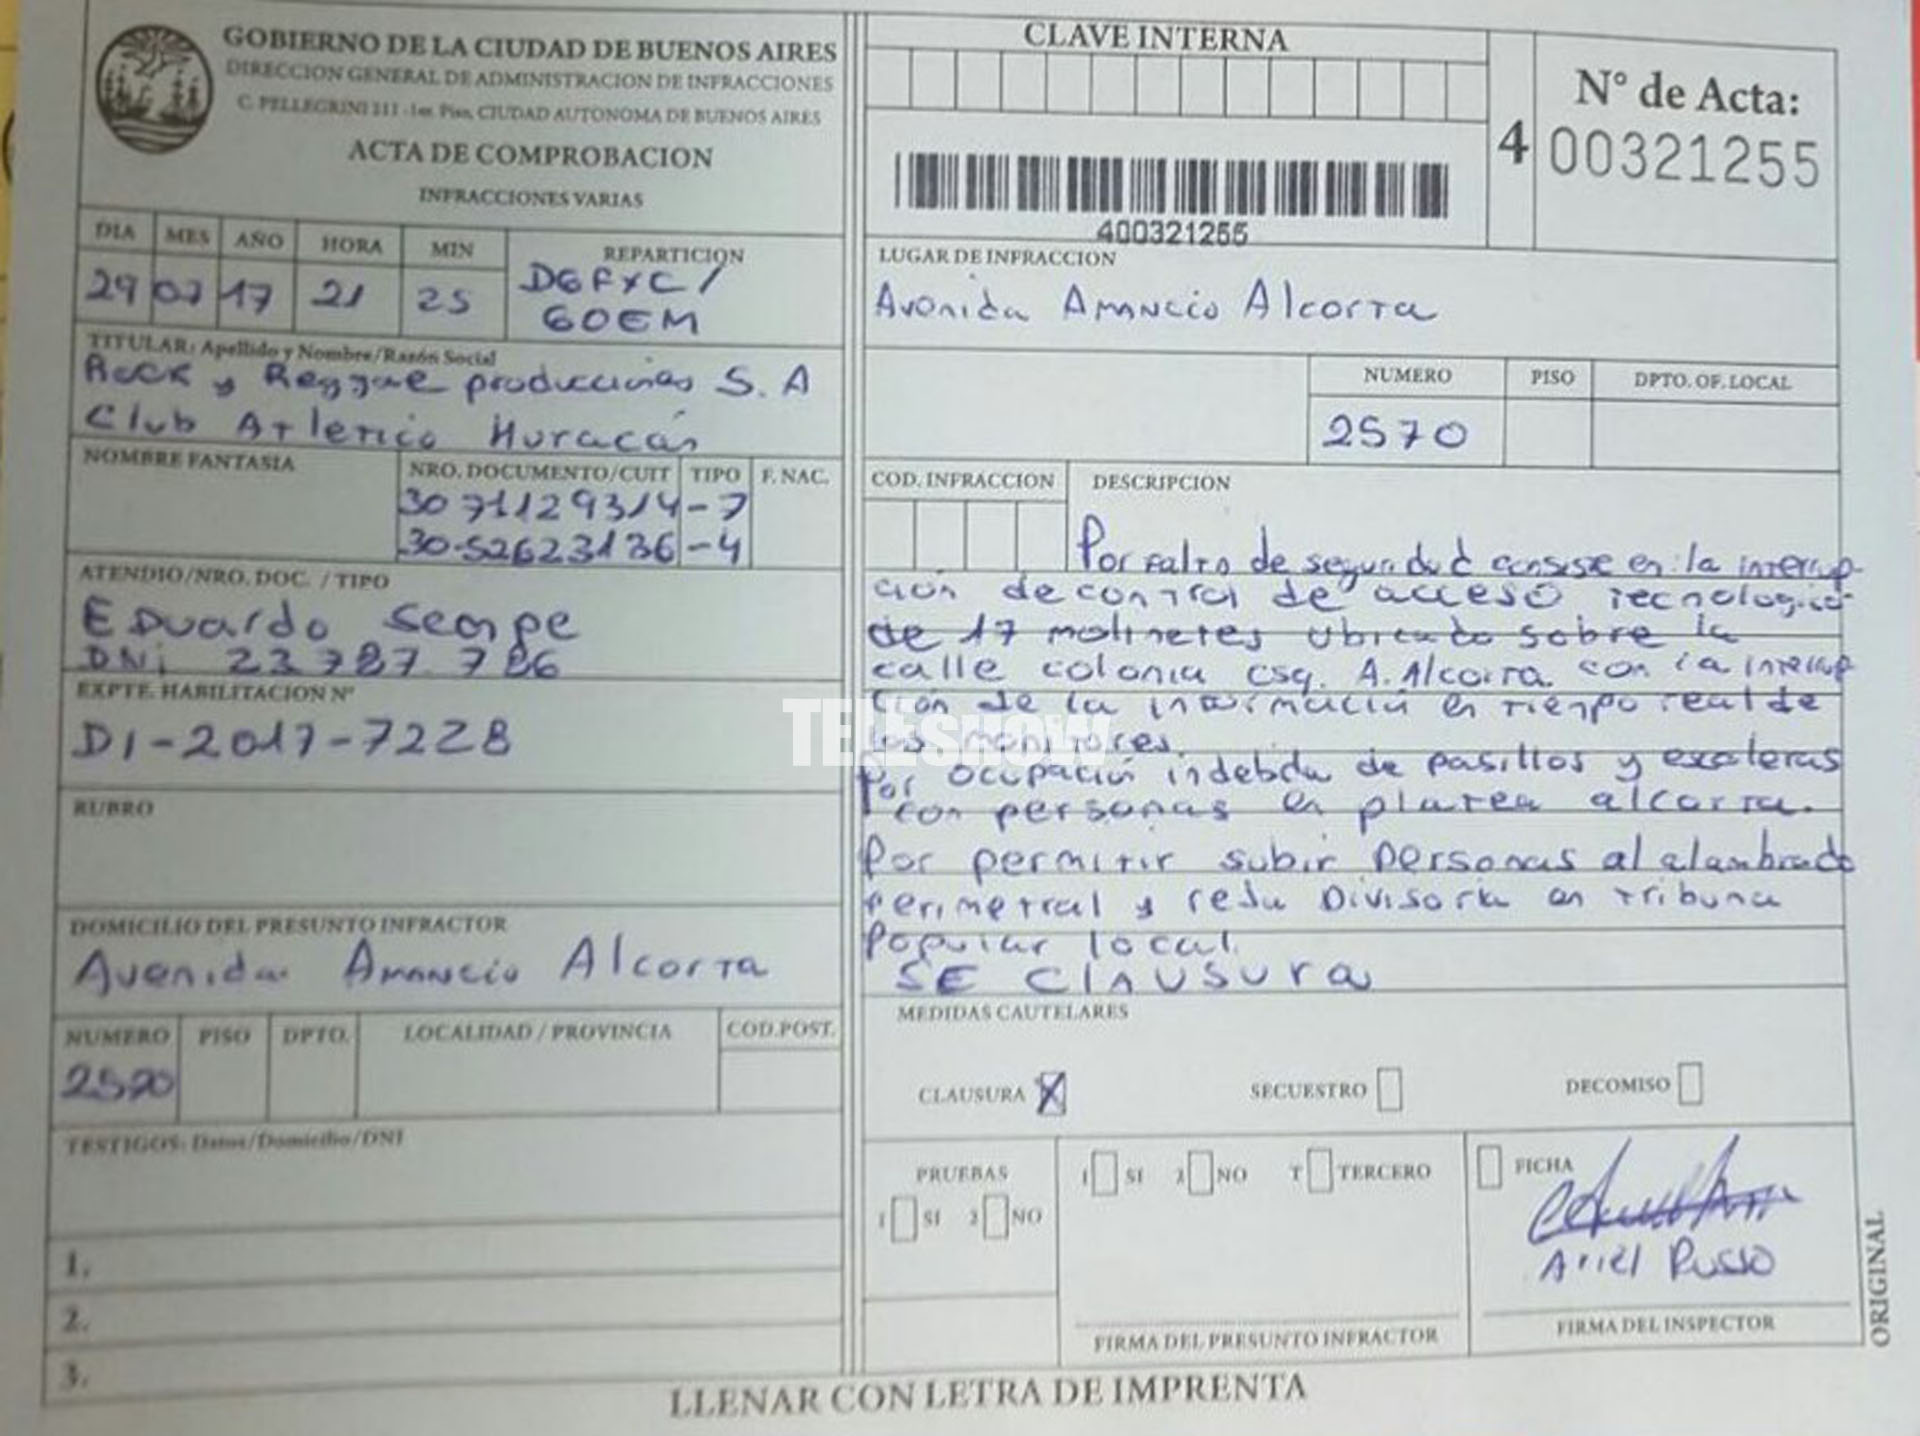 GOBIERNO DE LA CIUDAD DE BUENOS AIRES
DIRECCION GENERAL DE ADMINISTRACION DE INFRACCIONES
C. PELLEGRINI 211 - 1er. Piso, CIUDAD AUTONOMA DE BUENOS AIRES
ACTA DE COMPROBACION
INFRACCIONES VARIAS
DIA MES AÑO HORA MIN REPARTICION
29 07 17 21 25 DGFYC/
GOEM
TITULAR: Apellido y Nombre/Razón Social
Rock y Reggae producciones S.A
Club Atletico Huracán
NOMBRE FANTASIA NRO. DOCUMENTO/CUIT TIPO F. NAC.
30 71129314-7
30-52623136-4
ATENDIO/NRO. DOC. / TIPO
Eduardo Sempe
DNi 23 787 786
EXPTE. HABILITACION Nº
DI-2017-7228
RUBRO
DOMICILIO DEL PRESUNTO INFRACTOR
Avenida Amancio Alcorta
NUMERO PISO DPTO. LOCALIDAD / PROVINCIA COD.POST.
2570
TESTIGOS: Datos/Domicilio/DNI
1.
2.
3.
CLAVE INTERNA
4
Nº de Acta:
00321255
400321255
LUGAR DE INFRACCION
Avenida Amancio Alcorta
NUMERO PISO DPTO. OF. LOCAL
2570
COD. INFRACCION DESCRIPCION
Por falta de seguridad consiste en la interrup-
ción de control de acceso tecnologico
de 17 molinetes ubicado sobre la
calle colonia esq. A. Alcorta con la interrup
ción de la información en tiempo real de
los monitores.
Por ocupación indebida de pasillos y escaleras
con personas en platea alcorta.
Por permitir subir personas al alambrado
perimetral y reja Divisoria en tribuna
Popular local.
SE CLAUSURA
MEDIDAS CAUTELARES
CLAUSURA X SECUESTRO DECOMISO
PRUEBAS
1 SI 2 NO
1 SI 2 NO T TERCERO
FICHA
Ariel Russo
FIRMA DEL PRESUNTO INFRACTOR
FIRMA DEL INSPECTOR
ORIGINAL
LLENAR CON LETRA DE IMPRENTA
TELESHOW